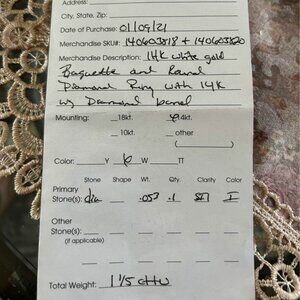 Address:
City, State, Zip:
Date of Purchase: 01/09/21
Merchandise SKU#: 140603818 + 140603820
Merchandise Description: 14K white gold
Baguette and Round
Diamond Ring with 14K
w/ Diamond band
Mounting: 18kt. 14kt.
10kt. other
Color: Y W TT
Stone Shape Wt. Qty. Clarity Color
Primary
Stone(s): dia .053 .1 SI1 I
Other
Stone(s):
(if applicable)
Total Weight: 1 1/5 CTTW